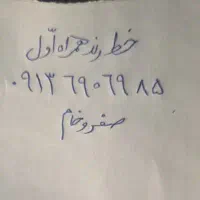 خط رند همراه اول
۰۹۱۳ ۶۹۰ ۶۹ ۸۵
صفر و خام